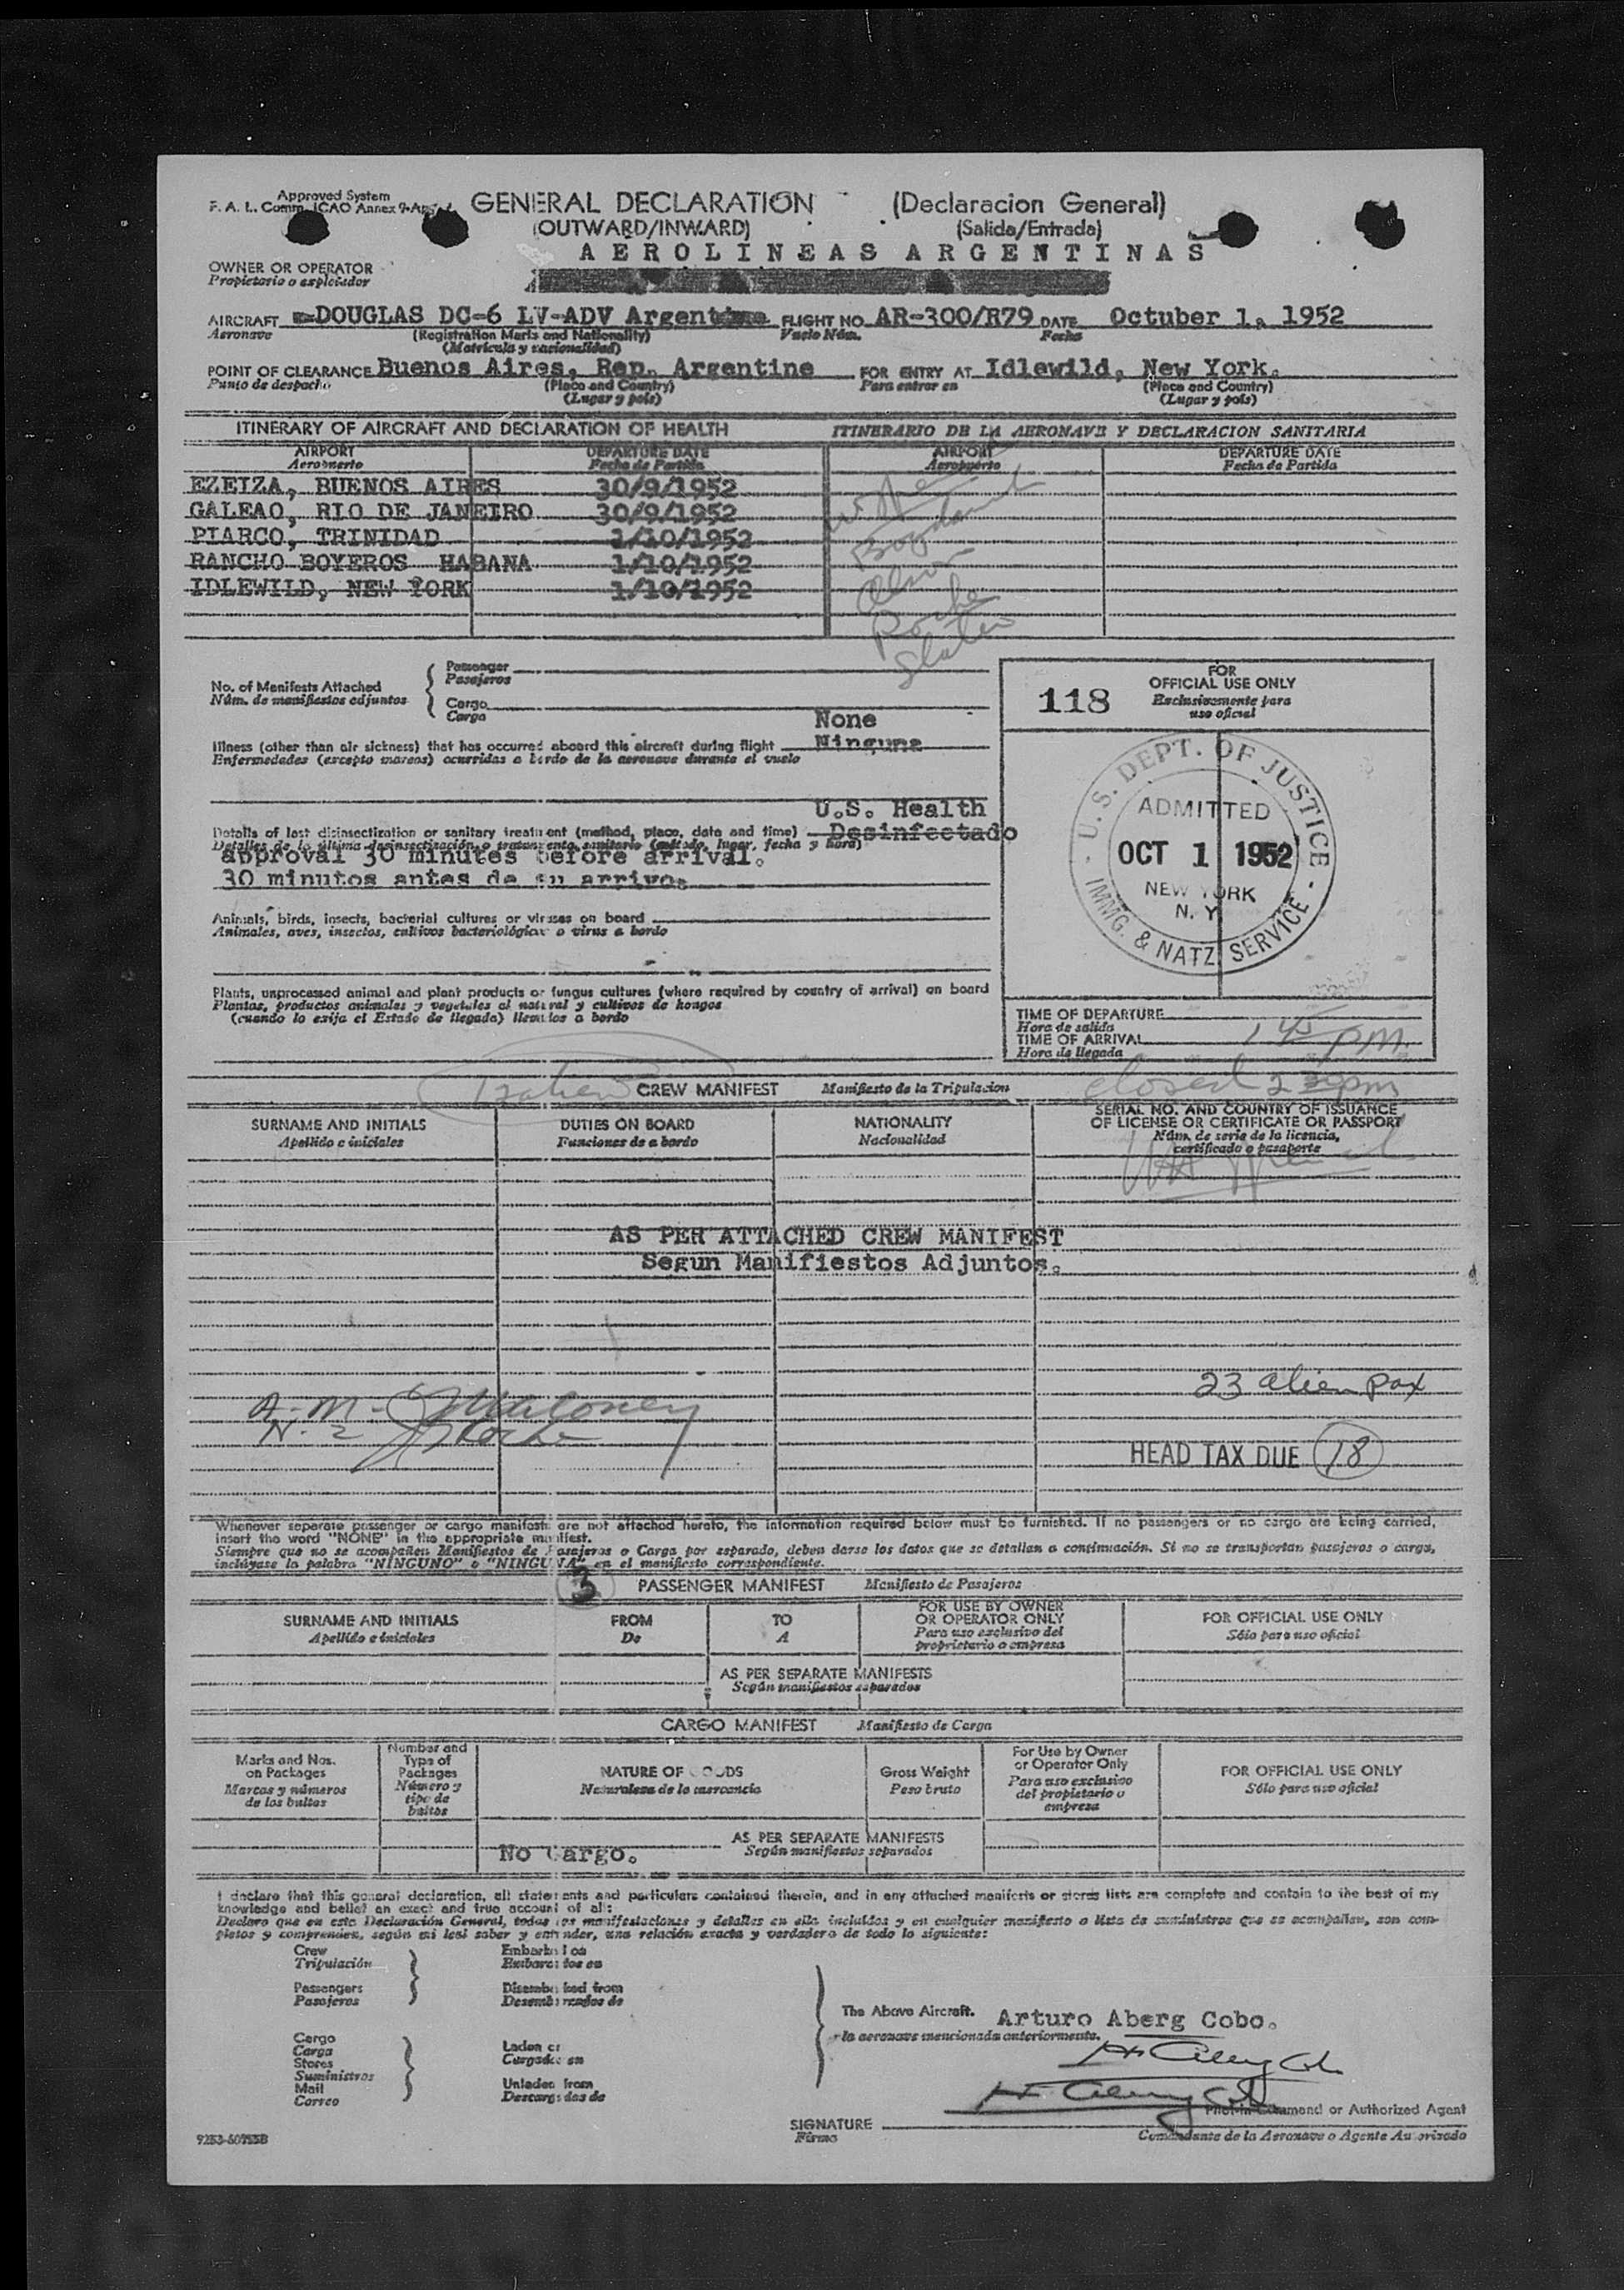 Approved System
F. A. L. Comm. ICAO Annex 9-
GENERAL DECLARATION (Declaracion General)
(OUTWARD/INWARD) (Salida/Entrada)
AEROLINEAS ARGENTINAS
OWNER OR OPERATOR
Propietario o explotador
AIRCRAFT DOUGLAS DC-6 LV-ADV FLIGHT NO. AR-300/R79 DATE Octuber 1, 1952
Aeronave (Registration Marks and Nationality) Vuelo Núm. Fecha
(Matrícula y nacionalidad)
POINT OF CLEARANCE Buenos Aires, Rep. Argentine FOR ENTRY AT Idlewild, New York.
Punto de despacho (Place and Country) Para entrar en (Place and Country)
(Lugar y país) (Lugar y país)
ITINERARY OF AIRCRAFT AND DECLARATION OF HEALTH ITINERARIO DE LA AERONAVE Y DECLARACION SANITARIA
AIRPORT DEPARTURE DATE AIRPORT DEPARTURE DATE
Aeropuerto Fecha de Partida Aeropuerto Fecha de Partida
EZEIZA, BUENOS AIRES 30/9/1952
GALEAO, RIO DE JANEIRO 30/9/1952
PIARCO, TRINIDAD 1/10/1952
RANCHO BOYEROS HABANA 1/10/1952
IDLEWILD, NEW YORK 1/10/1952
Roche
Slater
No. of Manifests Attached
Núm. de manifiestos adjuntos
Passenger
Pasajeros
Cargo
Carga
None
Illness (other than air sickness) that has occurred aboard this aircraft during flight Ninguna
Enfermedades (excepto mareos) ocurridas a bordo de la aeronave durante el vuelo
U.S. Health
Details of last disinsectization or sanitary treatment (method, place, date and time) Desinfectado
Detalles de la última desinsectización o tratamiento sanitario (método, lugar, fecha y hora)
approval 30 minutes before arrival.
30 minutos antes de su arrivo.
Animals, birds, insects, bacterial cultures or viruses on board
Animales, aves, insectos, cultivos bacteriológicos o virus a bordo
Plants, unprocessed animal and plant products or fungus cultures (where required by country of arrival) on board
Plantas, productos animales y vegetales al natural y cultivos de hongos
(cuando lo exija el Estado de llegada) llevados a bordo
118
FOR
OFFICIAL USE ONLY
Exclusivamente para
uso oficial
U.S. DEPT. OF JUSTICE
ADMITTED
OCT 1 1952
NEW YORK
N. Y.
IMMG. & NATZ. SERVICE
TIME OF DEPARTURE
Hora de salida
TIME OF ARRIVAL 1 45 PM
Hora de llegada
closed 2 30pm
CREW MANIFEST Manifiesto de la Tripulacion
SURNAME AND INITIALS DUTIES ON BOARD NATIONALITY SERIAL NO. AND COUNTRY OF ISSUANCE
OF LICENSE OR CERTIFICATE OR PASSPORT
Apellido e iniciales Funciones de a bordo Nacionalidad Núm. de serie de la licencia,
certificado o pasaporte
AS PER ATTACHED CREW MANIFEST
Segun Manifiestos Adjuntos.
23 alien pax
A. M. Maloney
HEAD TAX DUE 18
Whenever separate passenger or cargo manifests are not attached hereto, the information required below must be furnished. If no passengers or no cargo are being carried,
insert the word "NONE" in the appropriate manifest.
Siempre que no se acompañen Manifiestos de Pasajeros o Carga por separado, deben darse los datos que se detallan a continuación. Si no se transportan pasajeros o carga,
inclúyase la palabra "NINGUNO" o "NINGUNA" en el manifiesto correspondiente.
3
PASSENGER MANIFEST Manifiesto de Pasajeros
SURNAME AND INITIALS FROM TO FOR USE BY OWNER
OR OPERATOR ONLY FOR OFFICIAL USE ONLY
Apellido e iniciales De A Para uso exclusivo del
propietario o empresa Sólo para uso oficial
AS PER SEPARATE MANIFESTS
Según manifiestos separados
CARGO MANIFEST Manifiesto de Carga
Marks and Nos.
on Packages
Marcas y números
de los bultos
Number and
Type of
Packages
Número y
tipo de
bultos
NATURE OF GOODS
Naturaleza de la mercancía
Gross Weight
Peso bruto
For Use by Owner
or Operator Only
Para uso exclusivo
del propietario o
empresa
FOR OFFICIAL USE ONLY
Sólo para uso oficial
AS PER SEPARATE MANIFESTS
No Cargo. Según manifiestos separados
I declare that this general declaration, all statements and particulars contained therein, and in any attached manifests or stores lists are complete and contain to the best of my
knowledge and belief an exact and true account of all:
Declaro que en esta Declaración General, todas las manifestaciones y detalles en ella incluidos y en cualquier manifiesto o lista de suministros que se acompañan, son com-
pletos y comprenden, según mi leal saber y entender, una relación exacta y verdadera de todo lo siguiente:
Crew
Tripulación
Passengers
Pasajeros
Embarked on
Embarcados en
Disembarked from
Desembarcados de
Cargo
Carga
Stores
Suministros
Mail
Correo
Laden on
Cargados en
Unladen from
Descargados de
The Above Aircraft. Arturo Aberg Cobo.
la aeronave mencionada anteriormente.
Pilot in Command or Authorized Agent
SIGNATURE
Firma
Comandante de la Aeronave o Agente Autorizado